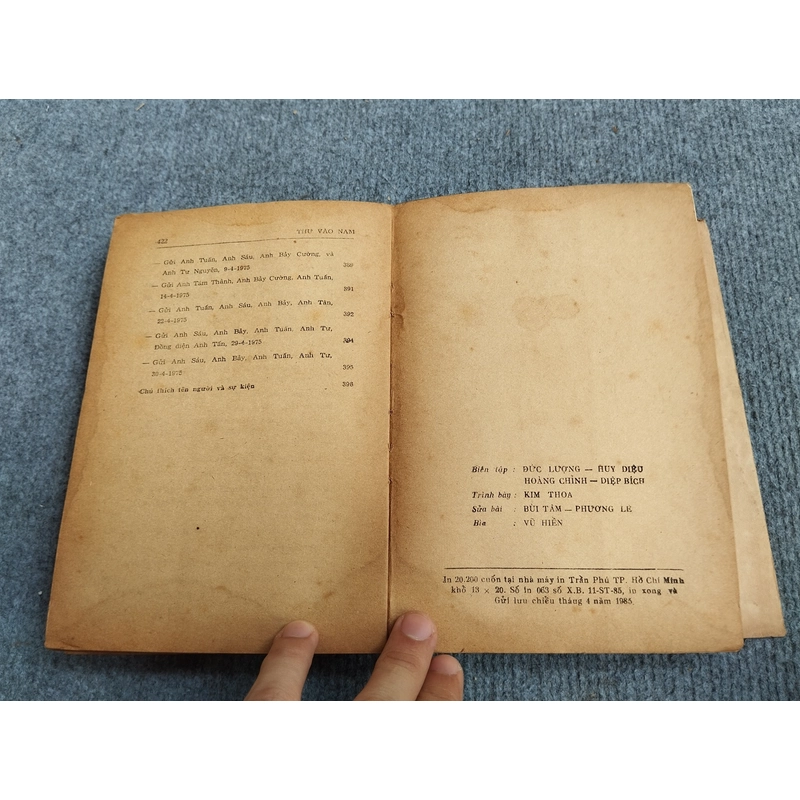 422 THƯ VÀO NAM
— Gửi Anh Tuấn, Anh Sáu, Anh Bảy Cường, và
Anh Tư Nguyễn, 9-4-1975 380
— Gửi Anh Tám Thành, Anh Bảy Cường, Anh Tuấn,
14-4-1975 391
— Gửi Anh Tuấn, Anh Sáu, Anh Bảy, Anh Tấn,
22-4-1975 392
— Gửi Anh Sáu, Anh Bảy, Anh Tuấn, Anh Tư,
Đồng điện Anh Tấn, 29-4-1975 394
— Gửi Anh Sáu, Anh Bảy, Anh Tuấn, Anh Tư,
30-4-1975 395
Chú thích tên người và sự kiện 396
Biên tập : ĐỨC LƯỢNG — HUY DIỆU
HOÀNG CHỈNH — DIỆP BÍCH
Trình bày : KIM THOA
Sửa bài : BÙI TÂM — PHƯƠNG LÊ
Bìa : VŨ HIỀN
In 20.200 cuốn tại nhà máy in Trần Phú TP. Hồ Chí Minh
khổ 13 × 20. Số in 063 số X.B. 11-ST-85, in xong và
Gửi lưu chiểu tháng 4 năm 1985